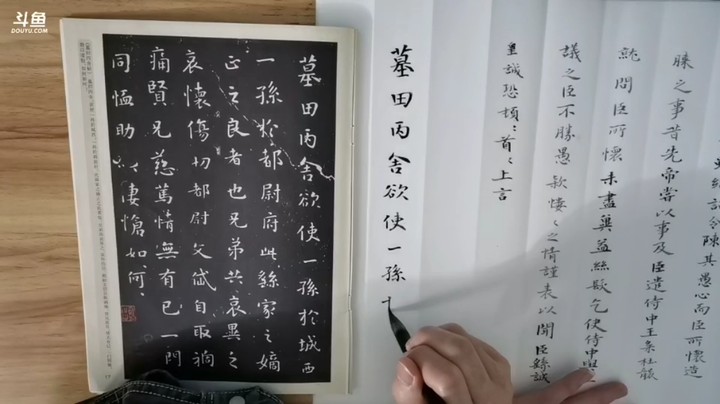 斗鱼
DOUYU.COM
墓田丙舍欲使一孫於城西
一孫於都尉府此繇家之嫡
正之良者也兄弟共哀異之
哀懷傷切都尉文岱自取禍
痛賢兄慈篤情無有已一門
同恤助以悽愴如何
陳其愚心而臣所懷造
之事昔先帝嘗以事及臣遣侍中王粲杜襲
就問臣所懷未盡冀益絲髮乞使侍中與臣
議之臣不勝愚款悽悽之情謹表以聞臣繇誠
皇誠恐頓:首:上言
墓田丙舍欲使一孫